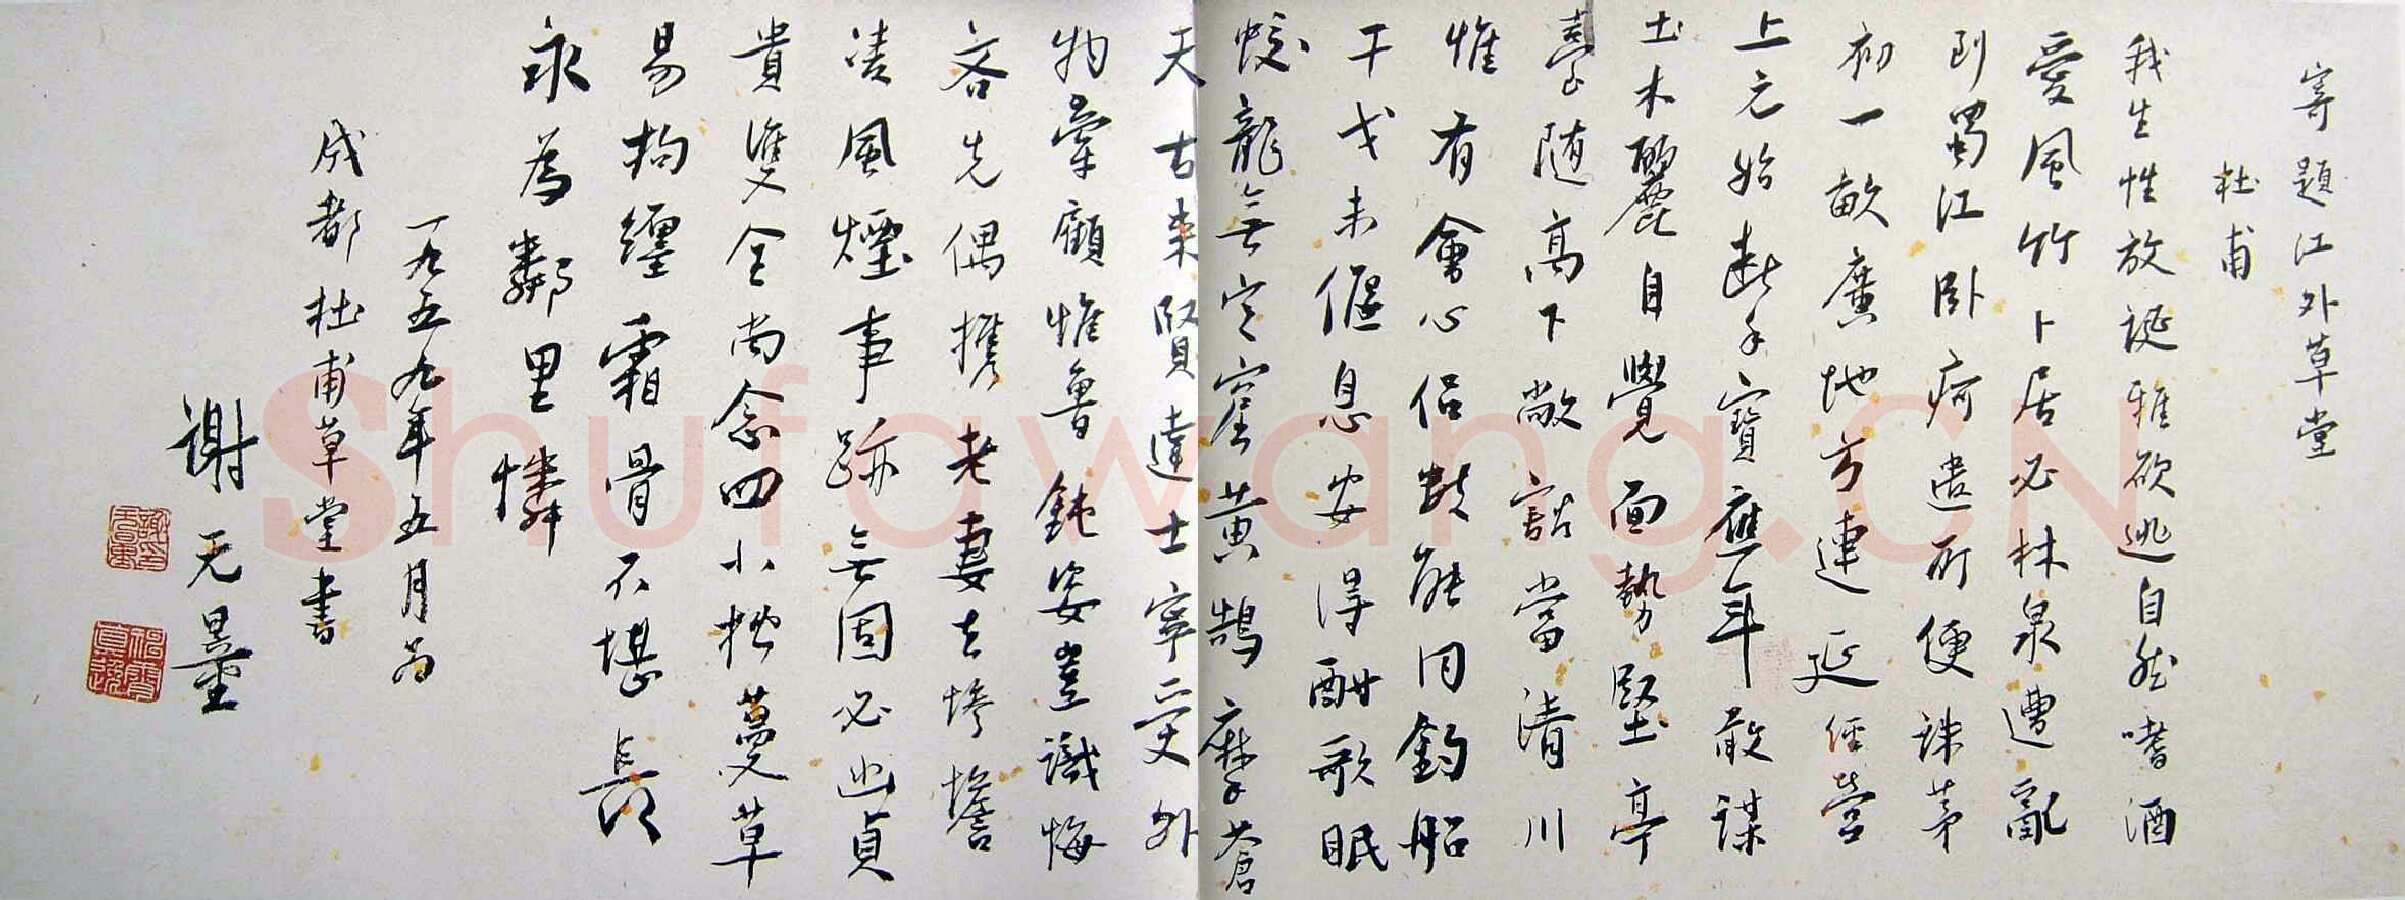 寄題江外草堂
杜甫
我生性放誕雅欲逃自然嗜酒
愛風竹卜居必林泉遭亂
到蜀江卧痾遣所便誅茅
初一畝廣地方連延經營
上元始斷手寶應年敢謀
土木麗自覺面勢堅亭
臺随高下敞豁當清川
惟有會心侣數能同釣船
干戈未偃息安得酣歌眠
蛟龍無定窟黄鵠摩蒼
天古來賢達士寧受外
物牽顧惟魯鈍姿豈識悔
吝先偶攜老妻去慘澹
凌風煙事跡無固必幽貞
貴雙全尚念四小松蔓草
易拘纏霜骨不堪長
永為鄰里憐
一九五九年五月為
成都杜甫草堂書
謝无量
Shufawang.CN